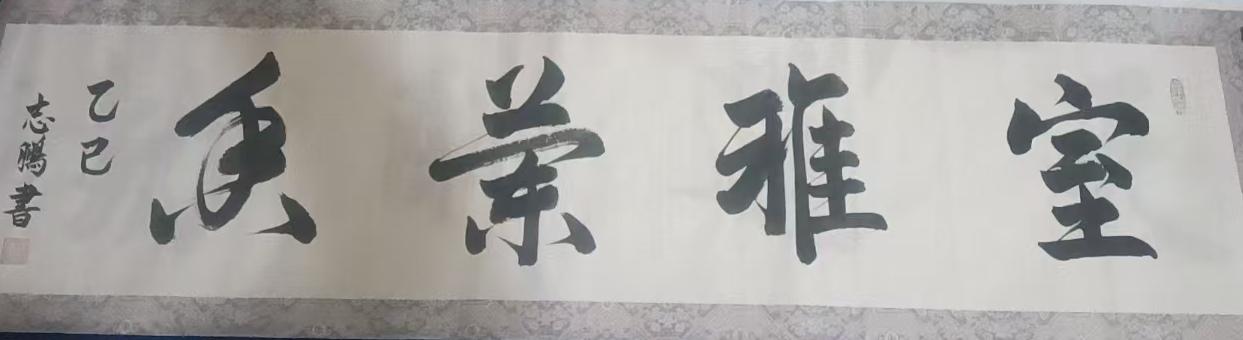 室雅蘭香
乙巳
志鵬書